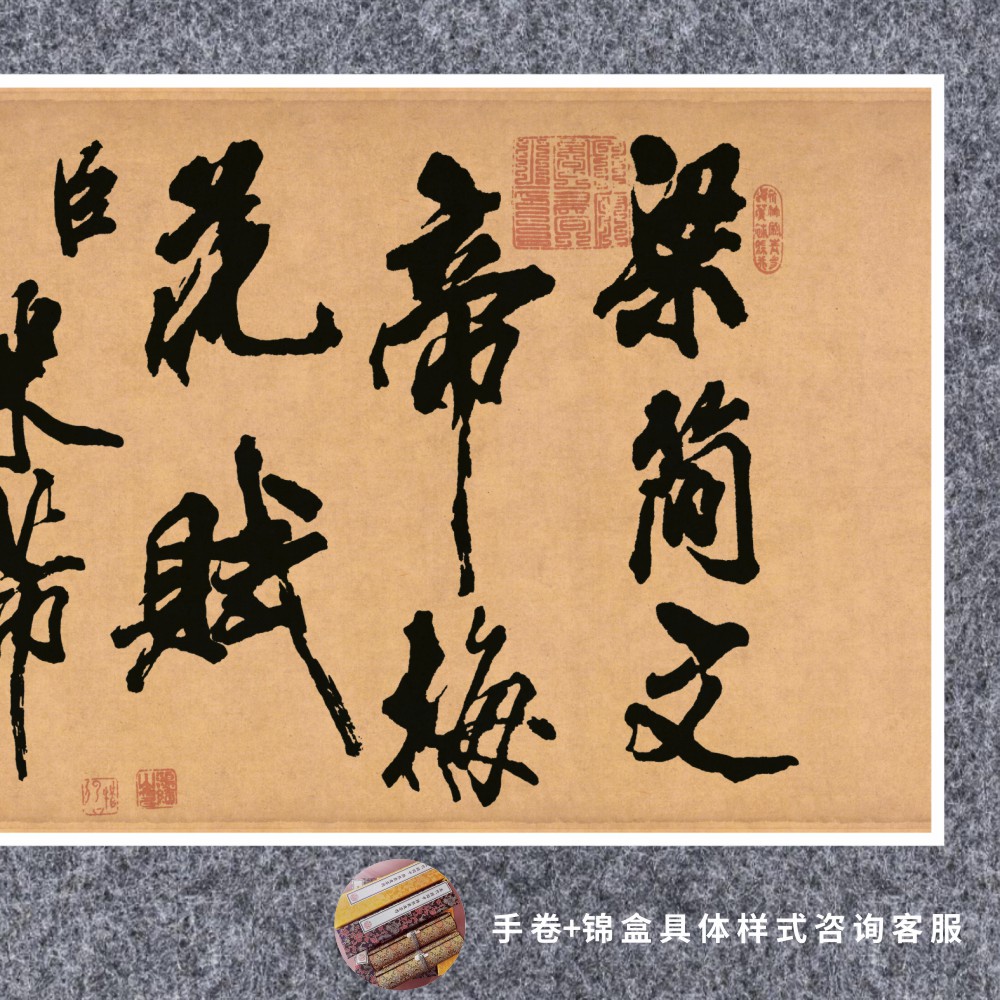 梁简文
帝梅
花赋
臣
米芾
手卷+锦盒具体样式咨询客服